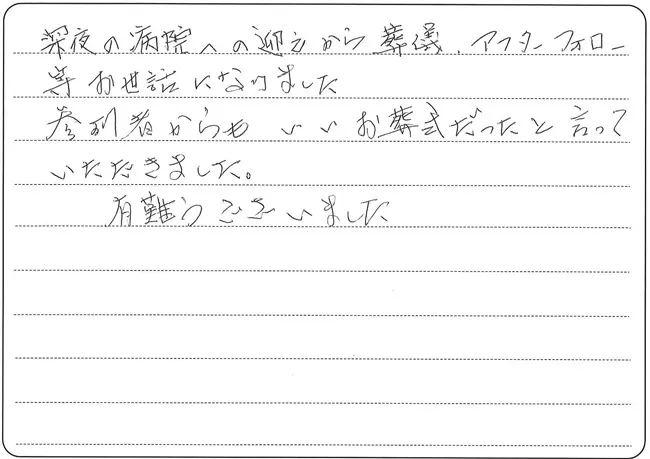 深夜の病院への迎えから葬儀、アフターフォロー
等お世話になりました
参列者からも いいお葬式だったと言って
いただきました。
有難うございました